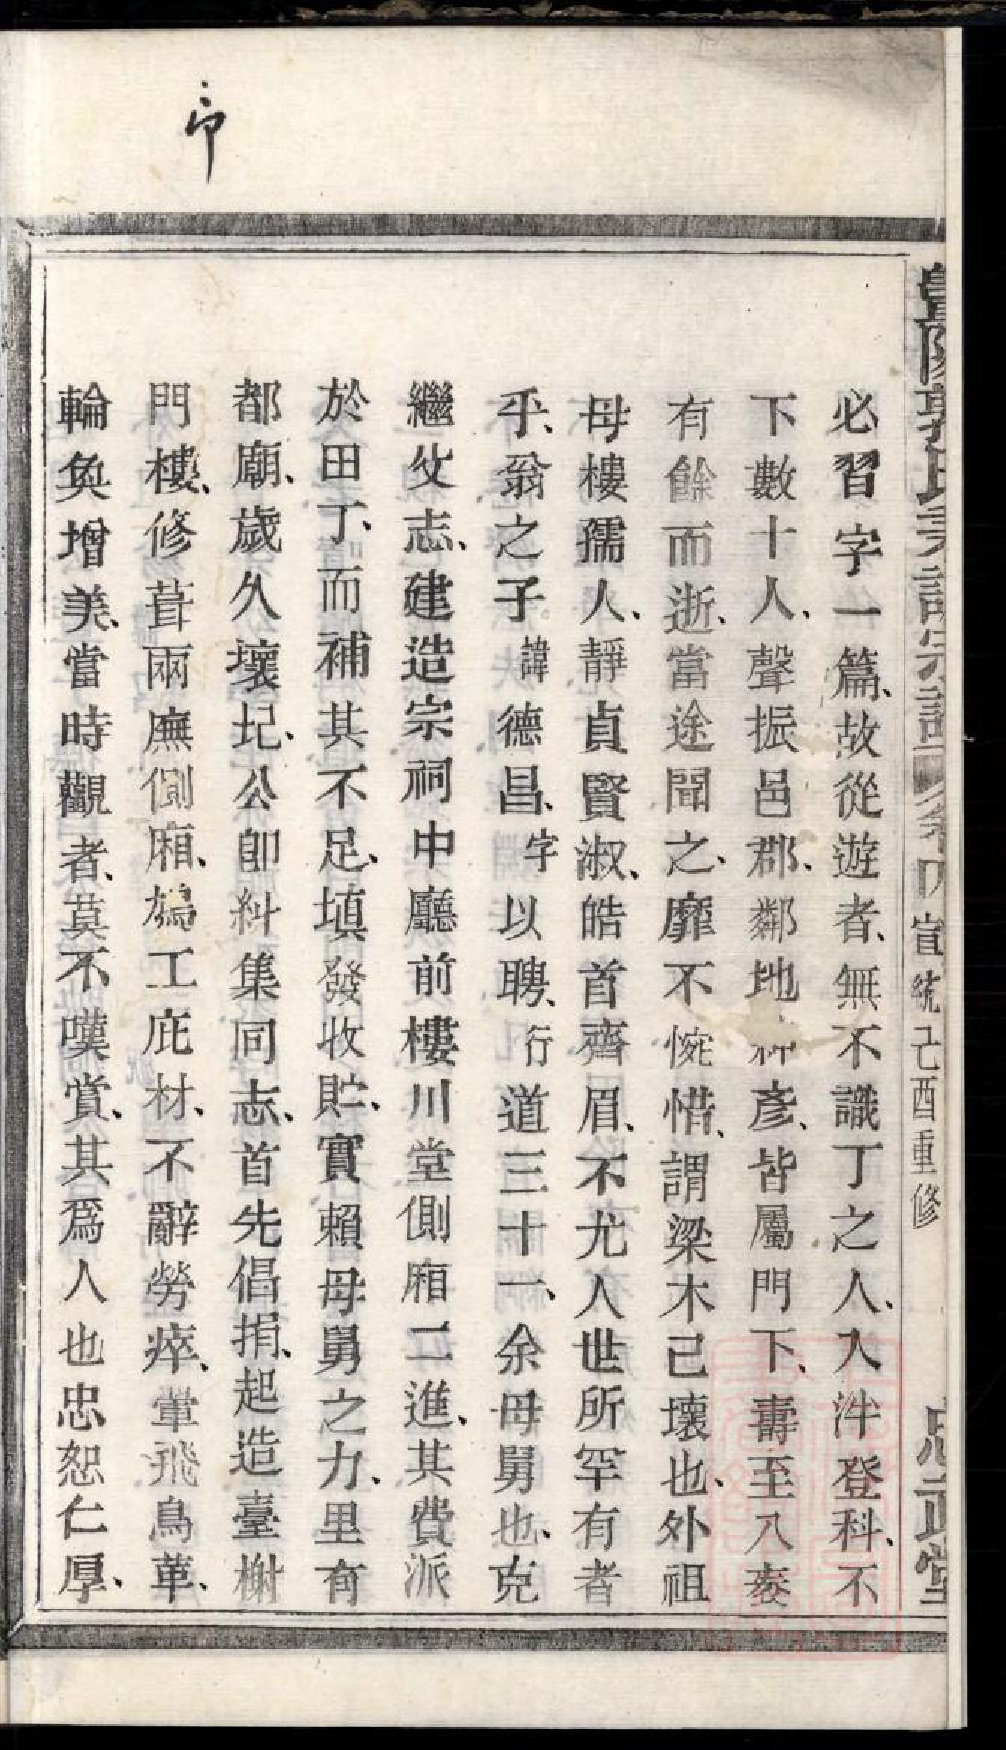 必習字一篇、故從遊者、無不識丁之人、入泮登科、不
下數十人、聲振邑郡、鄰地 彥、皆屬門下、壽至八袠
有餘而逝、當途聞之、靡不惋惜、謂梁木己壞也、外祖
母樓孺人、靜貞賢淑、皓首齊眉、不尤人世所罕有者
乎、翁之子諱德昌、字以聘、行道三十一、余母舅也、克
繼父志、建造宗祠中廳前樓川堂側廂二進、其費派
於田丁、而補其不足、填發收貯、實賴母舅之力、里有
都廟、歲久壞圮、公卽糾集同志、首先倡捐、起造臺榭
門樓、修葺兩廡側廂、鳩工庇材、不辭勞瘁、鞏飛鳥革、
輪奐增美、當時觀者、莫不嘆賞、其爲人也忠恕仁厚、
宣統己酉重修